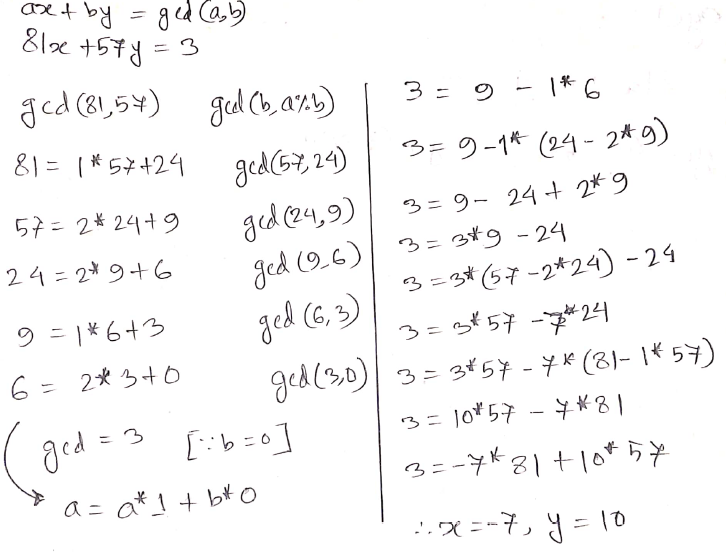 ax + by = gcd(a,b)
81x + 57y = 3
gcd(81,57) gcd(b, a%b)
81 = 1*57+24 gcd(57,24)
57 = 2*24+9 gcd(24,9)
24 = 2*9+6 gcd(9,6)
9 = 1*6+3 gcd(6,3)
6 = 2*3+0 gcd(3,0)
gcd = 3 [∵b=0]
a = a*1 + b*0
3 = 9 - 1*6
3 = 9-1*(24-2*9)
3 = 9- 24+ 2*9
3 = 3*9 -24
3 = 3*(57-2*24) -24
3 = 3*57 -7*24
3 = 3*57 -7*(81-1*57)
3 = 10*57 - 7*81
3 = -7*81 +10*57
∴x = -7, y = 10